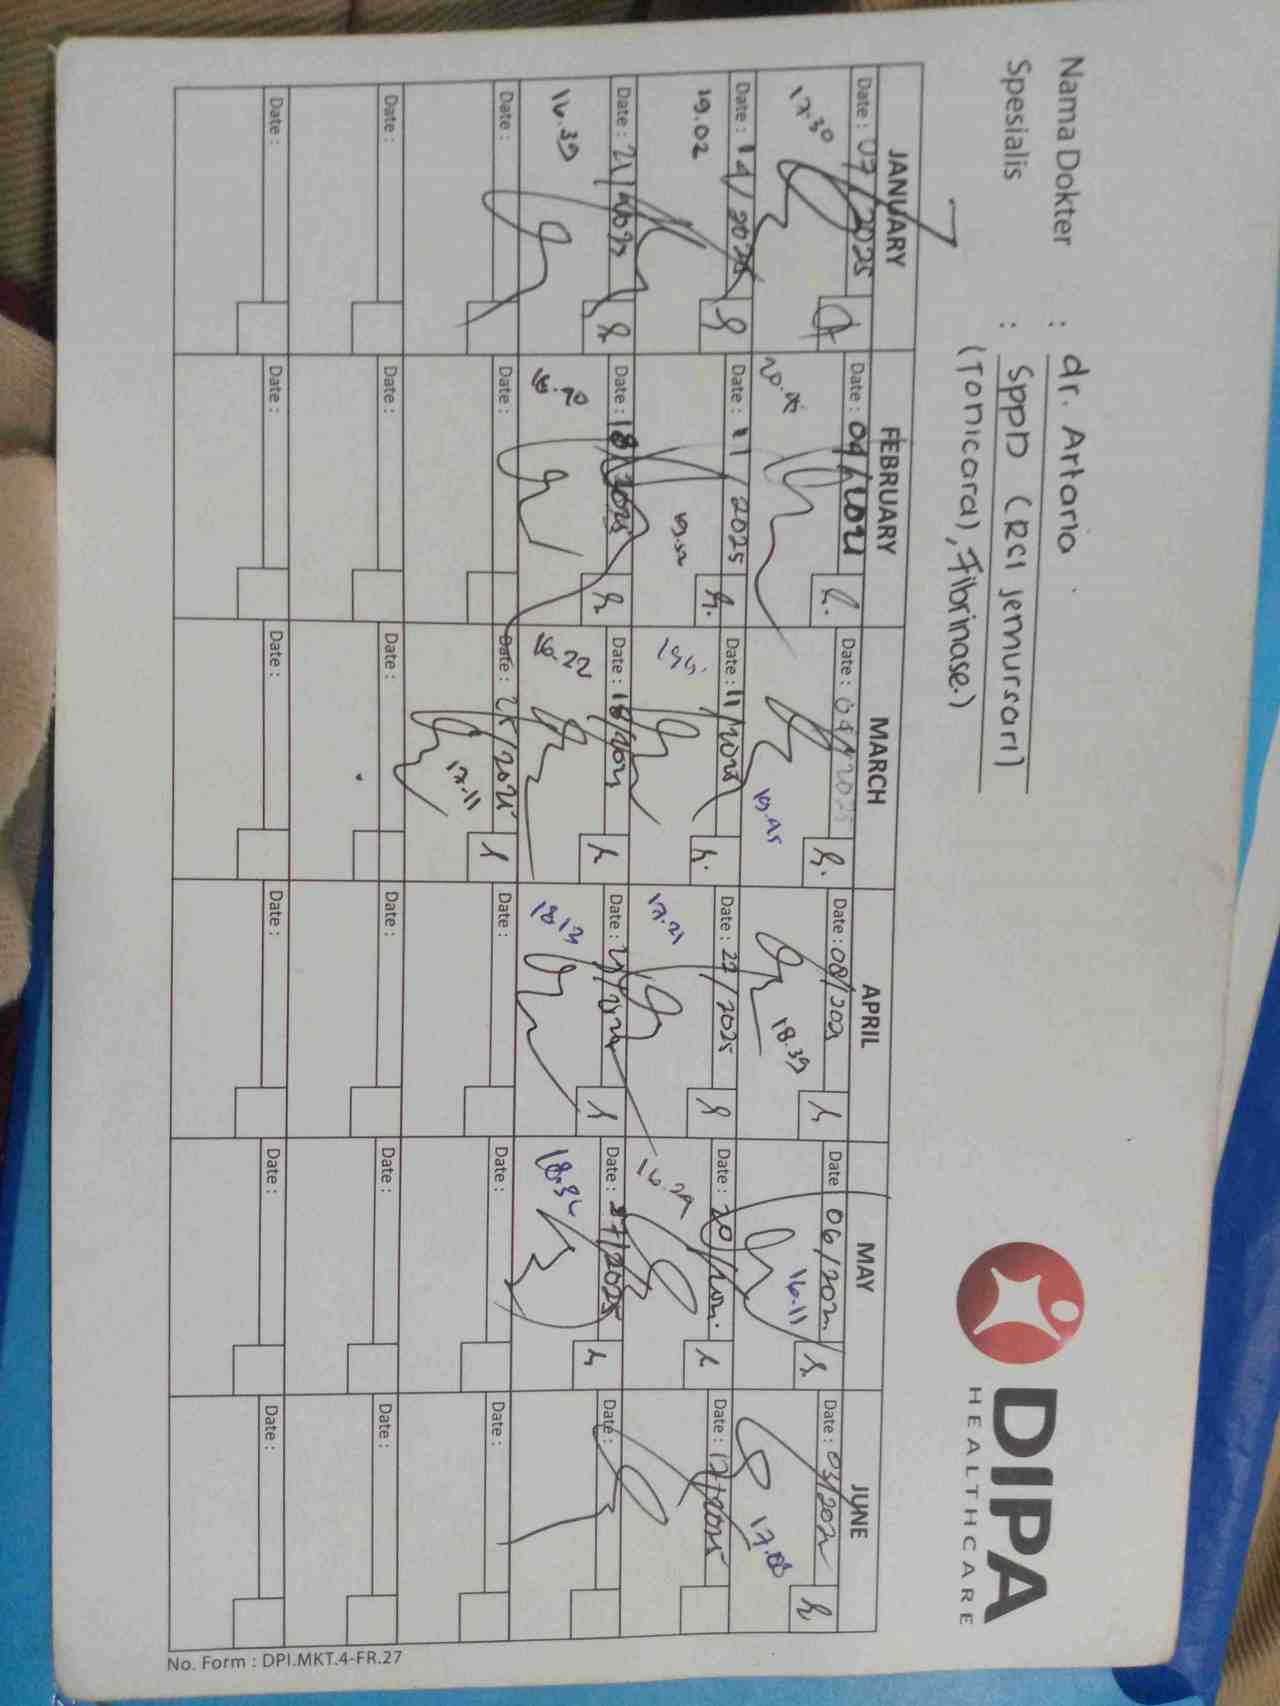 Nama Dokter : dr. Artaria
Spesialis : SppD (RSI jemursari)
(Tonicard), Fibrinase.)
DIPA
HEALTHCARE
JANUARY FEBRUARY MARCH APRIL MAY JUNE
Date : 07/2025 Date : 04/2025 Date : 04/2025 Date : 08/2025 Date : 06/202 Date : 03/202
17.30 19.45 18.39 16.11 17.08
Date : 14/2025 Date : 11/2025 Date : 11/2025 Date : 22/2025 Date : 20/ Date : 17/2025
19.02 19.52 17.21 16.29
Date : 21/2025 Date : 18/2025 Date : 18/2025 Date : Date : 27/2025 Date :
16.39 16.22 18.13 18.34
Date : Date : Date : 25/2025 Date : Date : Date :
17.11
Date : Date : Date : Date : Date :
Date : Date : Date : Date : Date : Date :
No. Form : DPI.MKT.4-FR.27